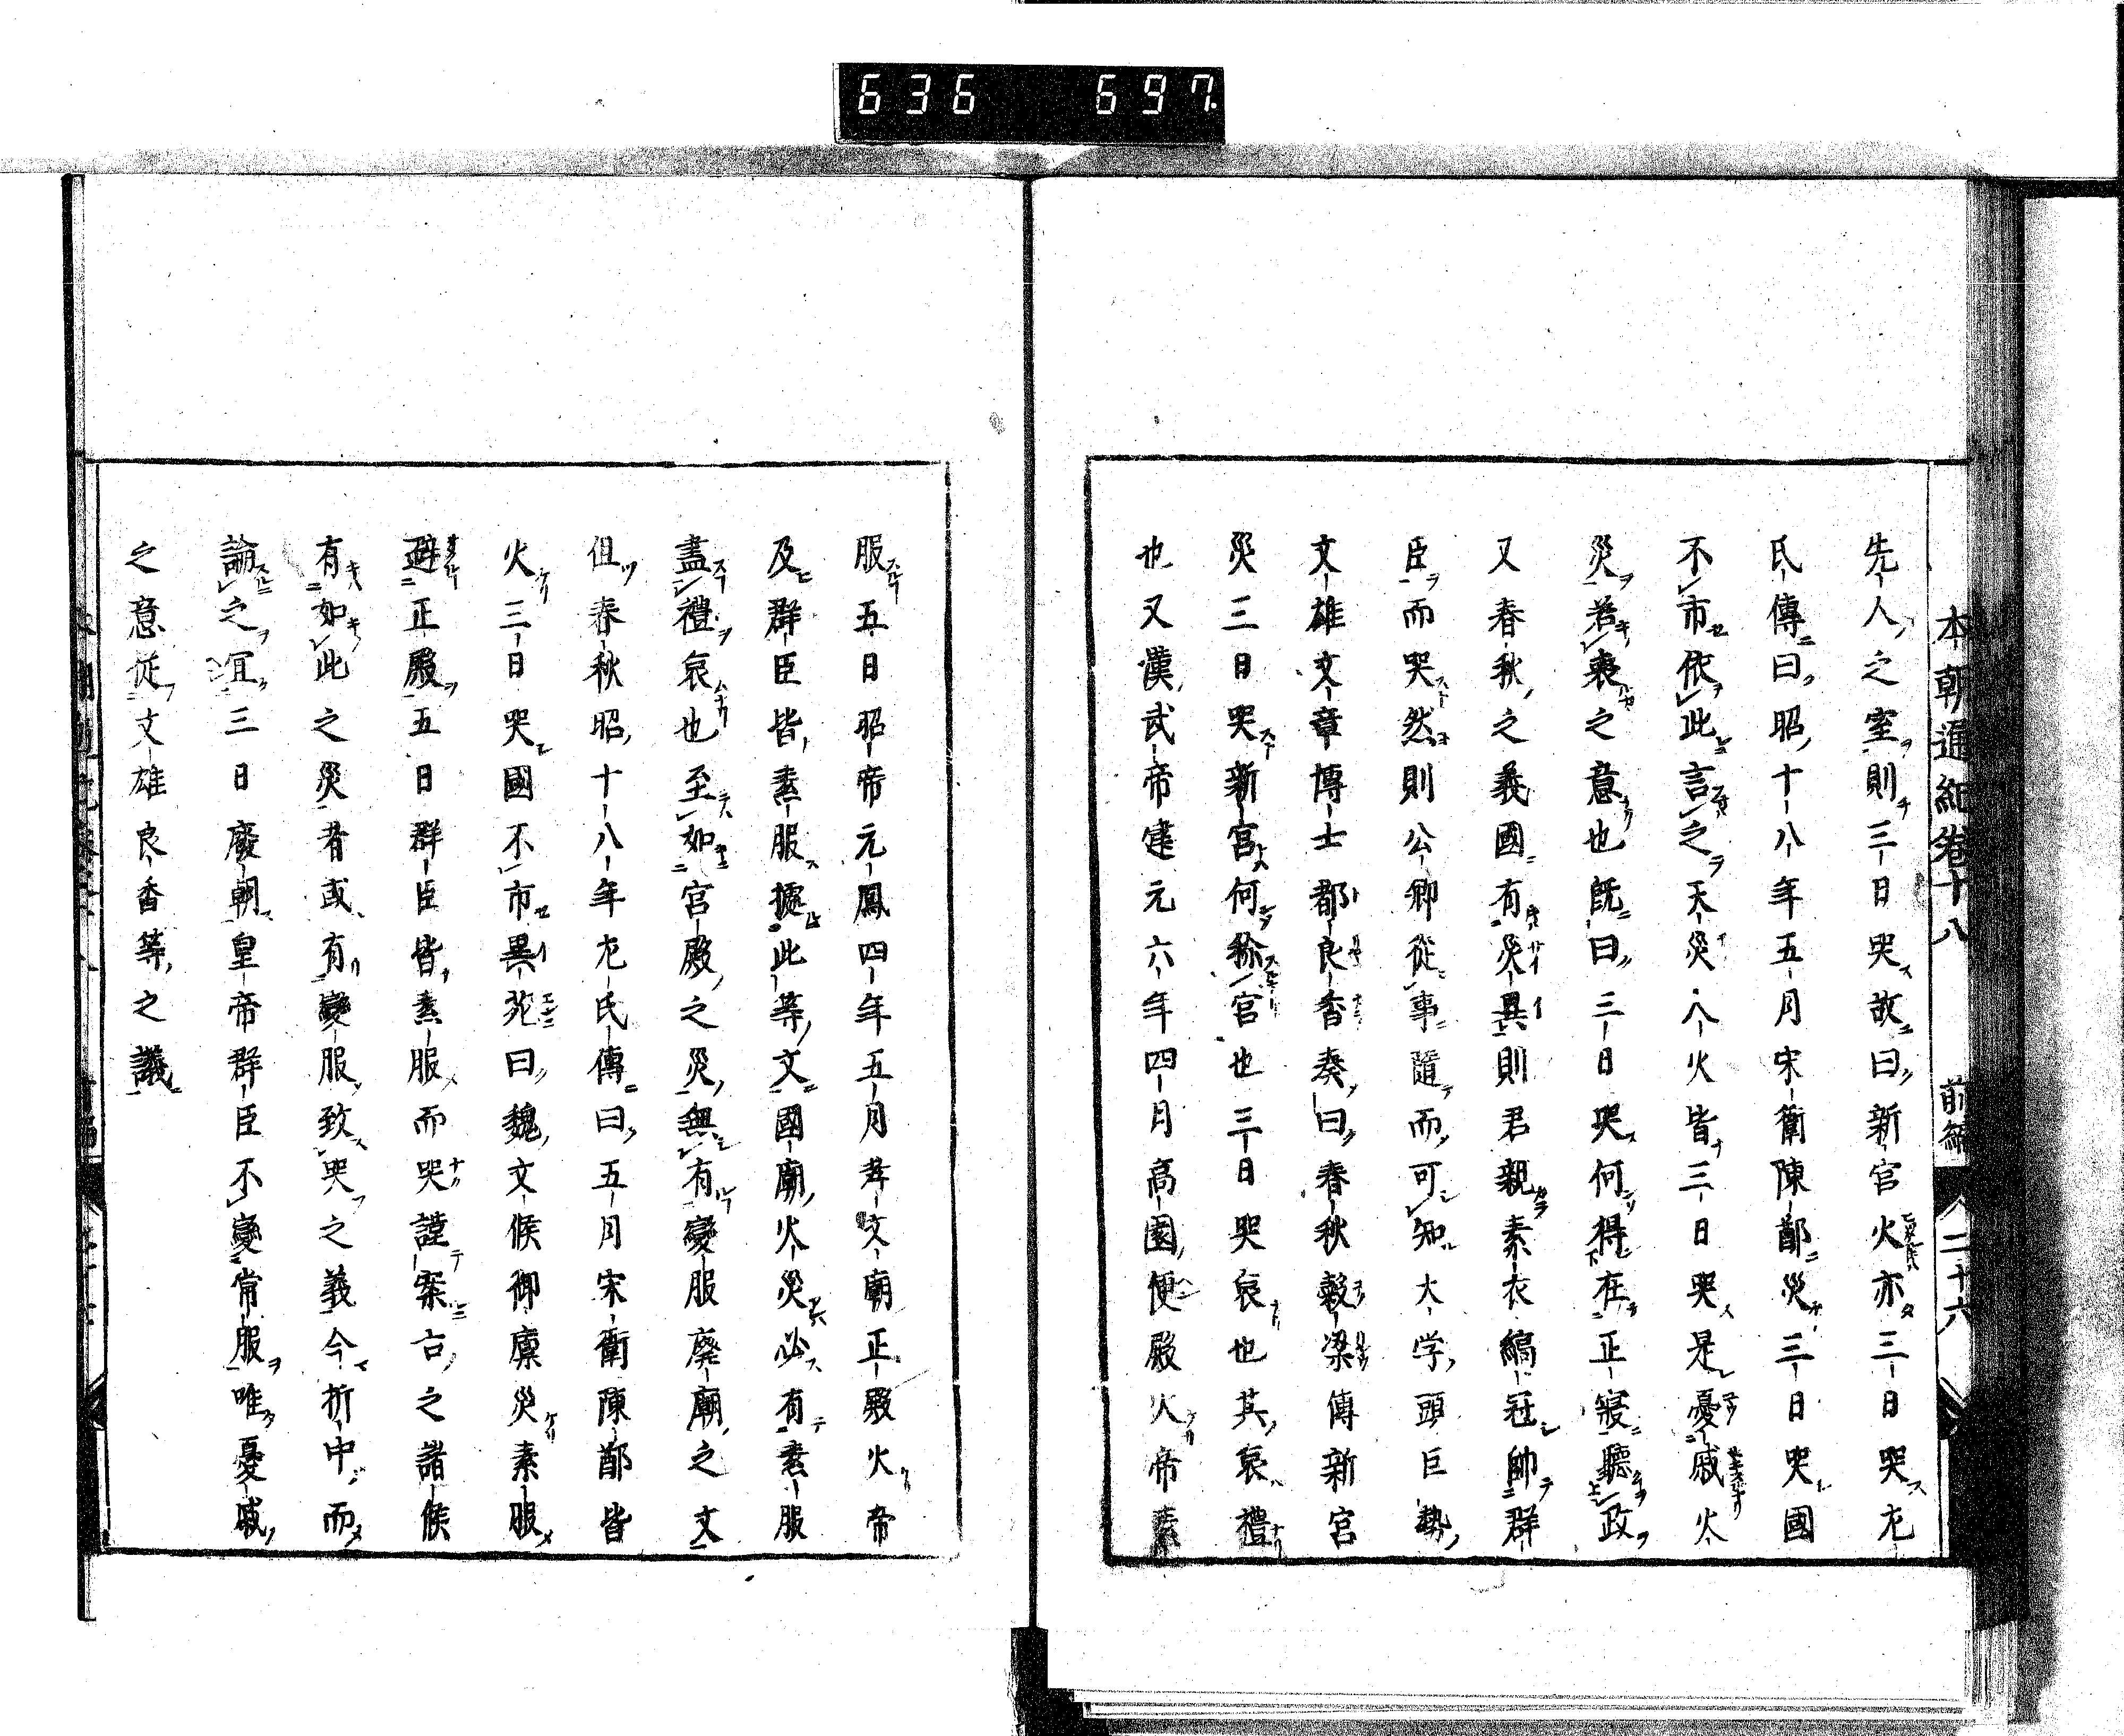 636 697
本朝通紀卷十八 前編 二十六
先人之室則三日哭故曰新宮火亦三日哭左
氏傳曰昭十八年五月宋衛陳鄭災三日哭國
不市依此言之天災人火皆三日哭是憂戚火
災若喪之意也既曰三日哭何得在正寢聽政
又春秋之義國有災異則君親素衣縞冠帥群
臣而哭然則公卿從事隨而可知大学頭巨勢
文雄文章博士都良香奏曰春秋穀梁傳新宮
災三日哭新宮何称宮也三日哭哀也其哀禮
也又漢武帝建元六年四月高園便殿火帝素
服五日昭帝元鳳四年五月孝文廟正殿火帝
及群臣皆素服據此等文國廟火災必有素服
盡禮哀也至如宮殿之災無有變服廃廟之文
但春秋昭十八年左氏傳曰五月宋衛陳鄭皆
火三日哭國不市異苑曰魏文侯御廩災素服
避正殿五日群臣皆素服而哭謹案古之諸侯
有如此之災者或有變服致哭之義今折中而
論之宜三日廢朝皇帝群臣不變常服唯憂戚
之意從文雄良香等之議